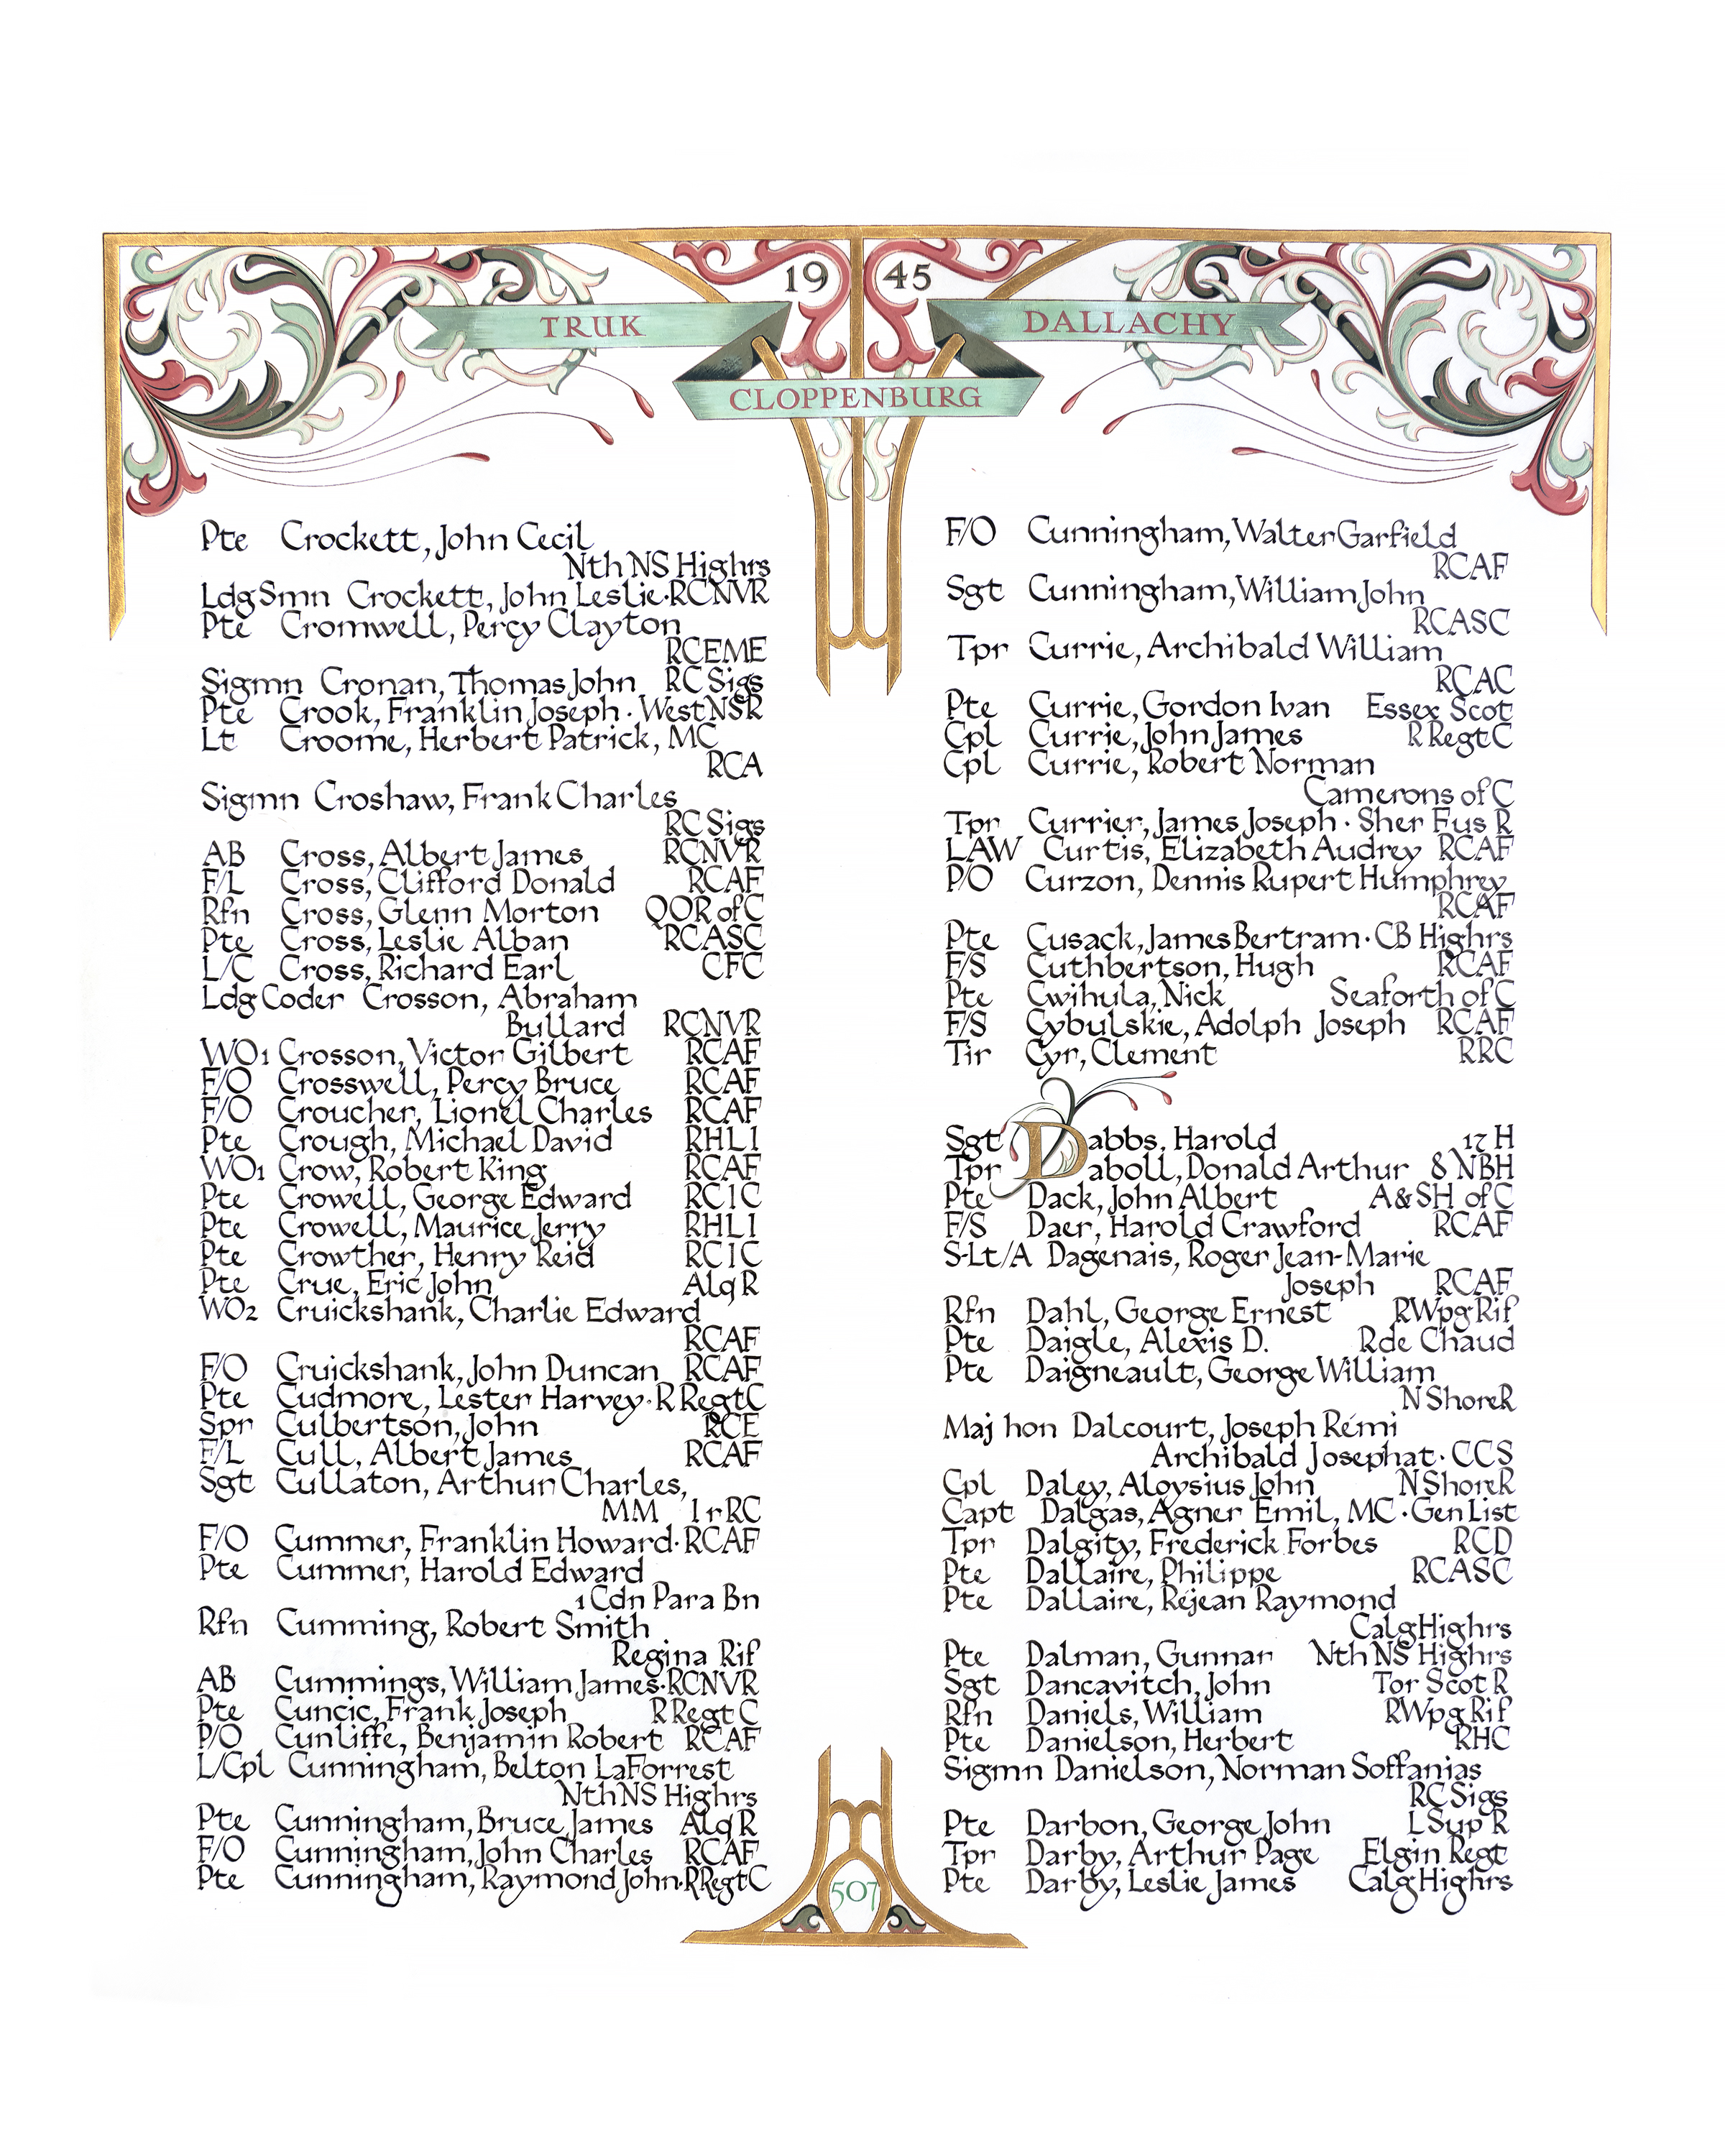 19 45
TRUK
DALLACHY
CLOPPENBURG
Pte Crockett, John Cecil
Nth NS Highrs
Ldg Smn Crockett, John Leslie · RCNVR
Pte Cromwell, Percy Clayton
RCEME
Sigmn Cronan, Thomas John RC Sigs
Pte Crook, Franklin Joseph · West NSR
Lt Croome, Herbert Patrick, MC
RCA
Sigmn Croshaw, Frank Charles
RC Sigs
AB Cross, Albert James RCNVR
F/L Cross, Clifford Donald RCAF
Rfn Cross, Glenn Morton QOR of C
Pte Cross, Leslie Alban RCASC
L/C Cross, Richard Earl CFC
Ldg Coder Crosson, Abraham
Bullard RCNVR
WO1 Crosson, Victor Gilbert RCAF
F/O Crosswell, Percy Bruce RCAF
F/O Croucher, Lionel Charles RCAF
Pte Crough, Michael David RHLI
WO1 Crow, Robert King RCAF
Pte Crowell, George Edward RCIC
Pte Crowell, Maurice Jerry RHLI
Pte Crowther, Henry Reid RCIC
Pte Crue, Eric John Alq R
WO2 Cruickshank, Charlie Edward
RCAF
F/O Cruickshank, John Duncan RCAF
Pte Cudmore, Lester Harvey · R Regt C
Spr Culbertson, John RCE
F/L Cull, Albert James RCAF
Sgt Cullaton, Arthur Charles,
MM Ir RC
F/O Cummer, Franklin Howard · RCAF
Pte Cummer, Harold Edward
1 Cdn Para Bn
Rfn Cumming, Robert Smith
Regina Rif
AB Cummings, William James · RCNVR
Pte Cuncic, Frank Joseph R Regt C
P/O Cunliffe, Benjamin Robert RCAF
L/Cpl Cunningham, Belton LaForrest
Nth NS Highrs
Pte Cunningham, Bruce James Alq R
F/O Cunningham, John Charles RCAF
Pte Cunningham, Raymond John · R Regt C
F/O Cunningham, Walter Garfield
RCAF
Sgt Cunningham, William John
RCASC
Tpr Currie, Archibald William
RCAC
Pte Currie, Gordon Ivan Essex Scot
Cpl Currie, John James R Regt C
Cpl Currie, Robert Norman
Camerons of C
Tpr Currier, James Joseph · Sher Fus R
LAW Curtis, Elizabeth Audrey RCAF
P/O Curzon, Dennis Rupert Humphrey
RCAF
Pte Cusack, James Bertram · CB Highrs
F/S Cuthbertson, Hugh RCAF
Pte Cwihula, Nick Seaforth of C
F/S Cybulskie, Adolph Joseph RCAF
Tir Cyr, Clement RRC
Sgt Dabbs, Harold 17 H
Tpr Daboll, Donald Arthur 8 NBH
Pte Dack, John Albert A & SH of C
F/S Daer, Harold Crawford RCAF
S-Lt/A Dagenais, Roger Jean-Marie
Joseph RCAF
Rfn Dahl, George Ernest RWpg Rif
Pte Daigle, Alexis D. R de Chaud
Pte Daigneault, George William
N Shore R
Maj hon Dalcourt, Joseph Rémi
Archibald Josephat · CCS
Cpl Daley, Aloysius John N Shore R
Capt Dalgas, Agner Emil, MC · Gen List
Tpr Dalgity, Frederick Forbes RCD
Pte Dallaire, Philippe RCASC
Pte Dallaire, Réjean Raymond
Calg Highrs
Pte Dalman, Gunnar Nth NS Highrs
Sgt Dancavitch, John Tor Scot R
Rfn Daniels, William RWpg Rif
Pte Danielson, Herbert RHC
Sigmn Danielson, Norman Soffanias
RC Sigs
Pte Darbon, George John L Sup R
Tpr Darby, Arthur Page Elgin Regt
Pte Darby, Leslie James Calg Highrs
507